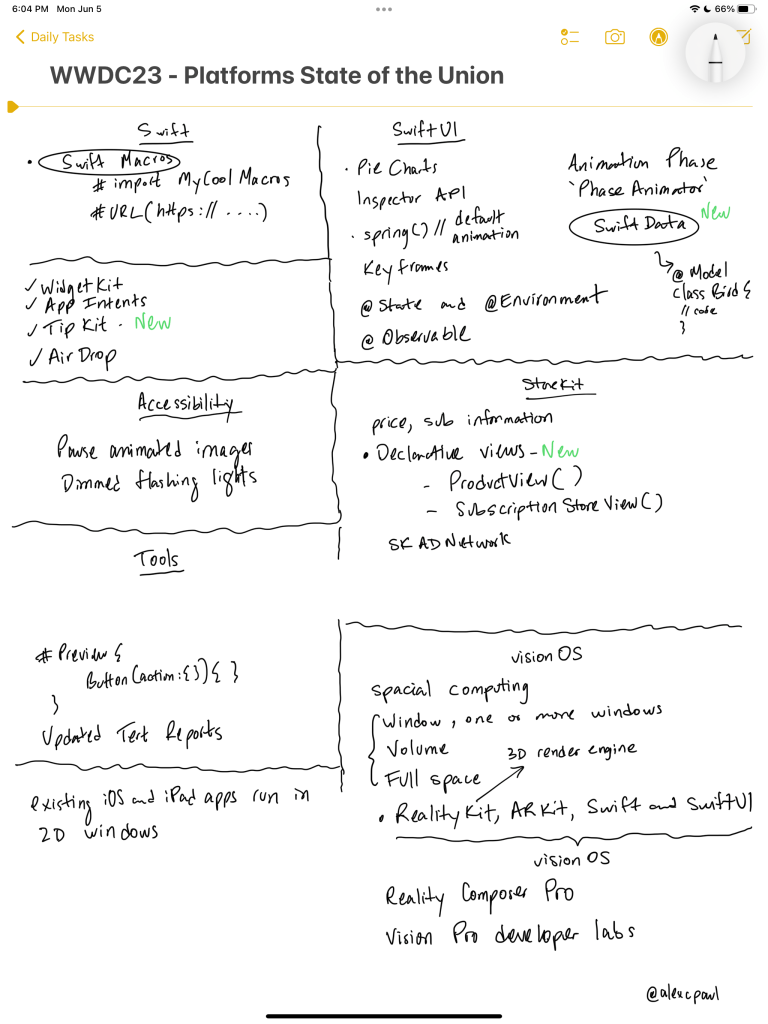 6:04 PM Mon Jun 5
66%
Daily Tasks
WWDC23 - Platforms State of the Union
Swift
• Swift Macros
# import MyCool Macros
# URL(https:// ....)
✓ WidgetKit
✓ App Intents
✓ Tip Kit - New
✓ Air Drop
Accessibility
Pause animated images
Dimmed flashing lights
Tools
# Preview {
Button (action:{}){ }
}
Updated Test Reports
existing iOS and iPad apps run in
2D windows
SwiftUI
· Pie Charts
Inspector API
· spring() // default
animation
Key frames
@ State and @Environment
@ Observable
Animation Phase
'Phase Animator'
Swift Data New
@ Model
class Bird {
// code
}
StoreKit
price, sub information
• Declarative views - New
- ProductView()
- Subscription Store View()
SK AD Network
vision OS
spacial computing
Window, one or more windows
Volume
3D render engine
Full space
• Reality Kit, AR Kit, Swift and SwiftUI
vision OS
Reality Composer Pro
Vision Pro developer labs
@alexcpaul